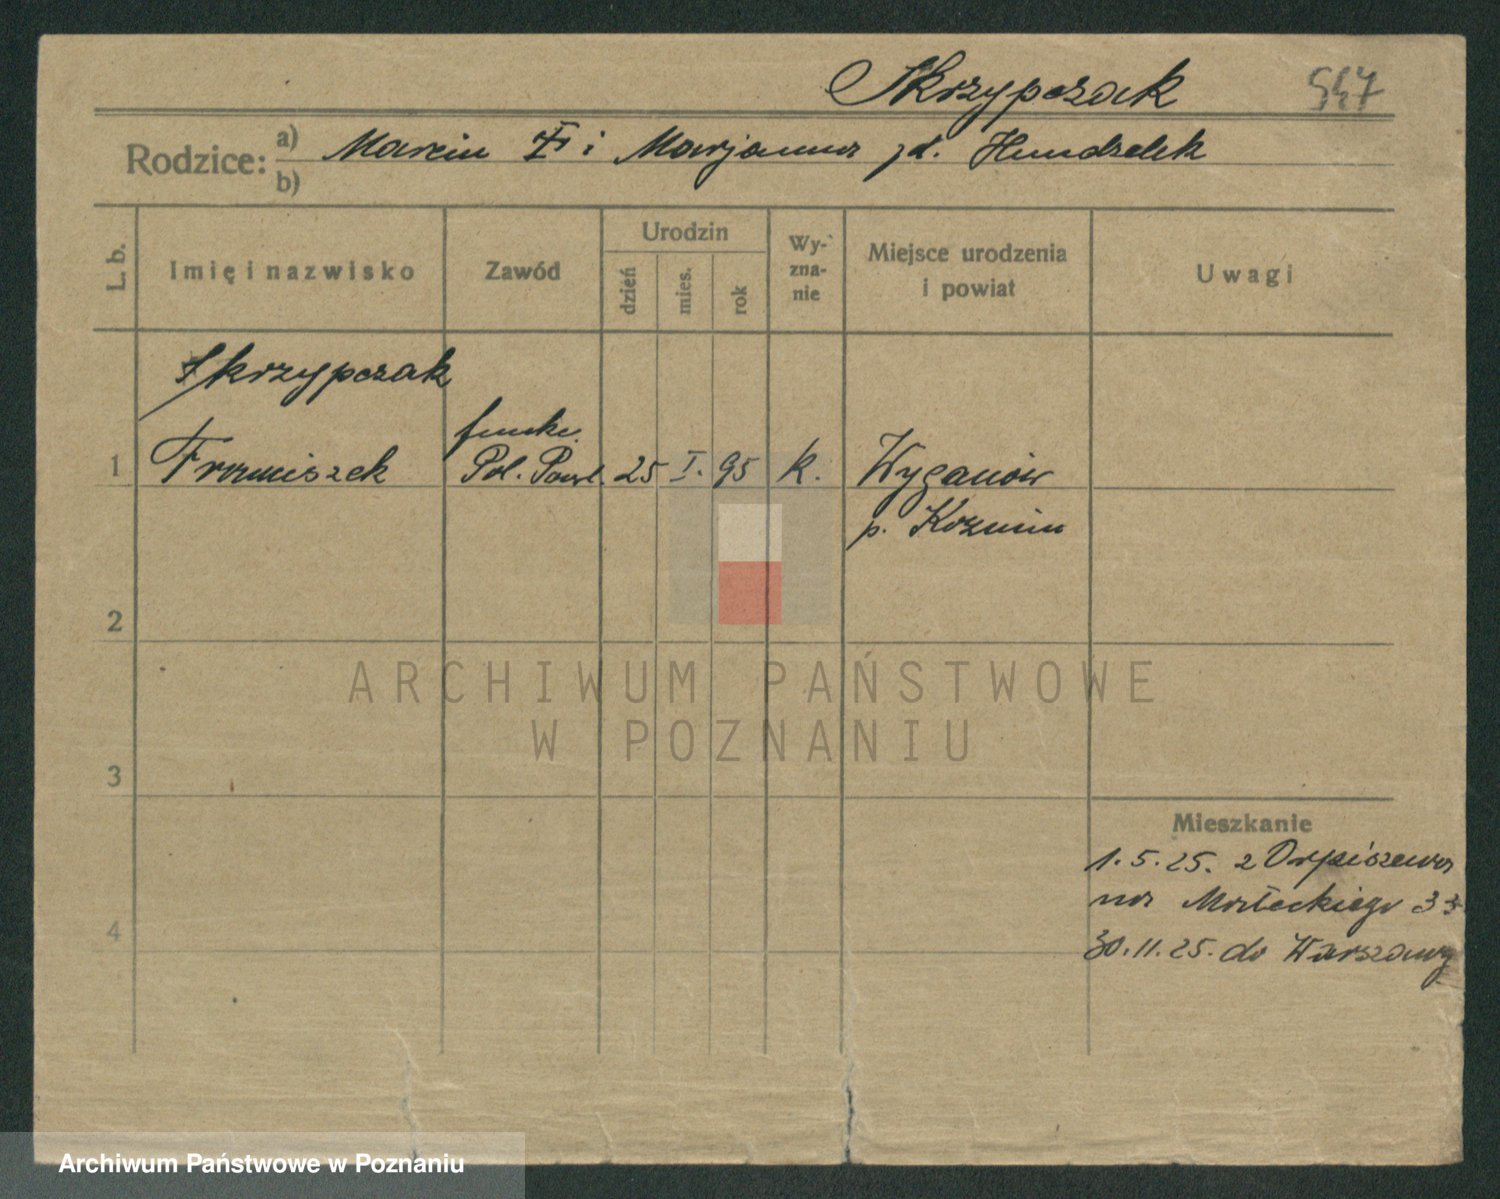 Skrzypczak 547
Rodzice: a) Marcin † i Marjanna zd. Hundzelek
b)
L. b. Imię i nazwisko Zawód Urodzin dzień mies. rok Wy-zna-nie Miejsce urodzenia i powiat Uwagi
Skrzypczak
1 Franciszek funkc. Pol. Państ. 25 I. 95 k. Wyganów
p. Koźmin
2
ARCHIWUM PAŃSTWOWE
W POZNANIU
3
Mieszkanie
1.5.25. z Orpiszewa
na Masłeckiego 33
4
30.11.25. do Warszawy
Archiwum Państwowe w Poznaniu